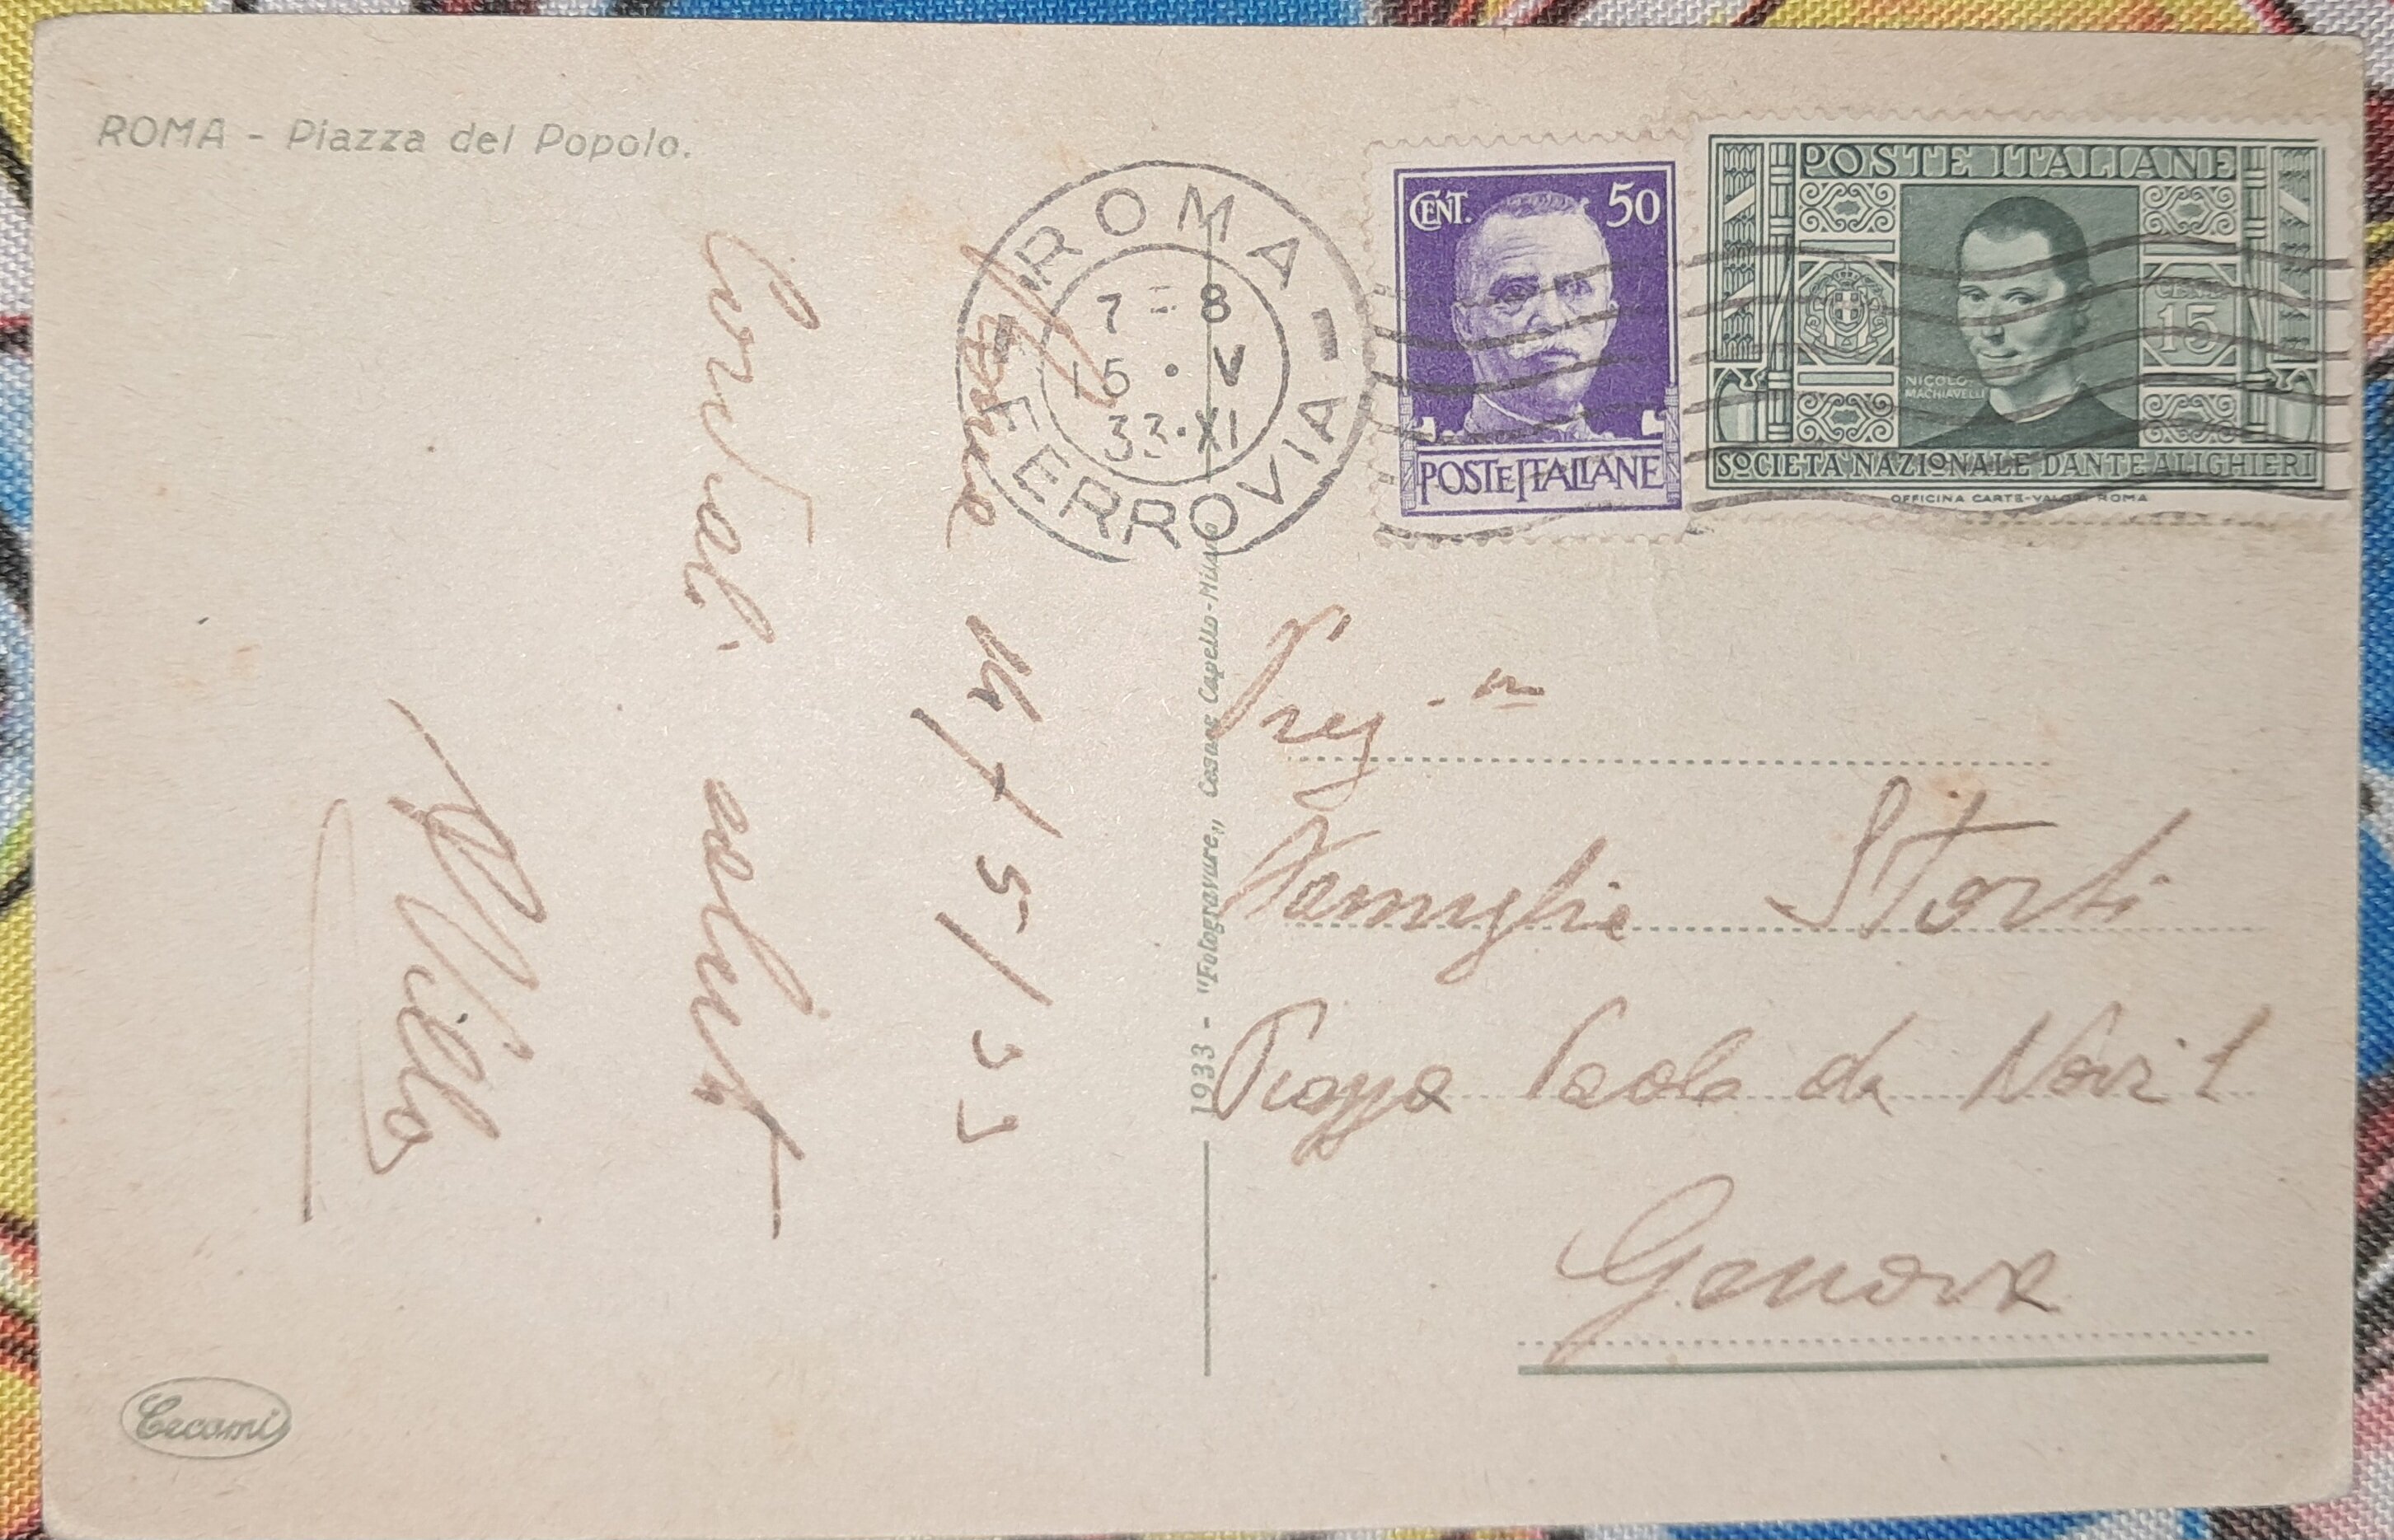 ROMA - Piazza del Popolo.
ROMA
7 - 8
15 · V
33·XI
FERROVIA
CENT. 50
POSTE ITALIANE
POSTE ITALIANE
NICOLO
MACHIAVELLI
CENT.
15
SOCIETÀ NAZIONALE DANTE ALIGHIERI
OFFICINA CARTE-VALORI ROMA
14/5/33
Cordiali saluti
1933 - "Fotogravure„ Cesare Capello-Milano
Preg.
Famiglia Storti
Piazza Paolo da Novi 1
Genova
Cecami